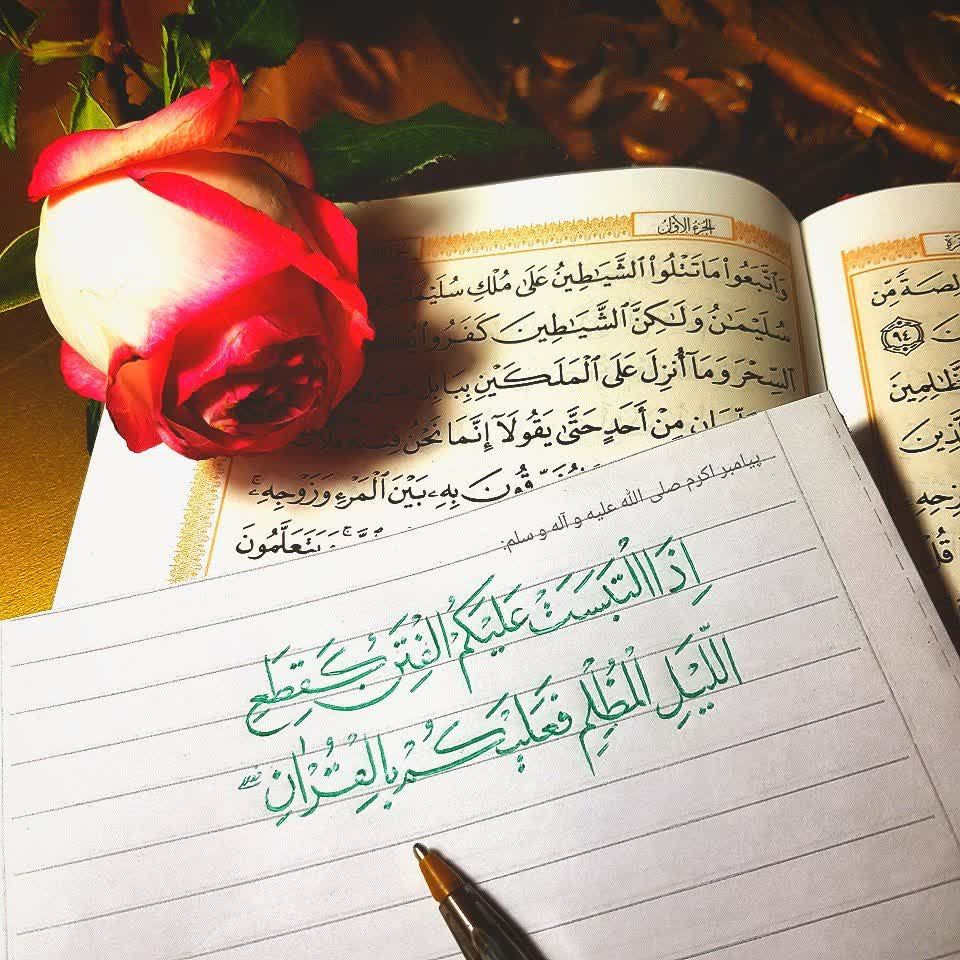 الجزء الأول
وَٱتَّبَعُوا۟ مَا تَتْلُوا۟ ٱلشَّيَـٰطِينُ عَلَىٰ مُلْكِ
سُلَيْمَـٰنُ وَلَـٰكِنَّ ٱلشَّيَـٰطِينَ كَفَرُوا۟
ٱلسِّحْرَ وَمَآ أُنزِلَ عَلَى ٱلْمَلَكَيْنِ بِبَابِلَ
مِنْ أَحَدٍ حَتَّىٰ يَقُولَآ إِنَّمَا نَحْنُ
بِهِۦ بَيْنَ ٱلْمَرْءِ وَزَوْجِهِۦ ۚ
وَيَتَعَلَّمُونَ
مِّن
٩٤
پیامبر اکرم صلی الله علیه و آله و سلم:
اِذَا الْتَبَسَتْ عَلَیْکُمُ الْفِتَنُ کَقِطَعِ
اللَّیْلِ الْمُظْلِمِ فَعَلَیْکُمْ بِالْقُرْآنِ